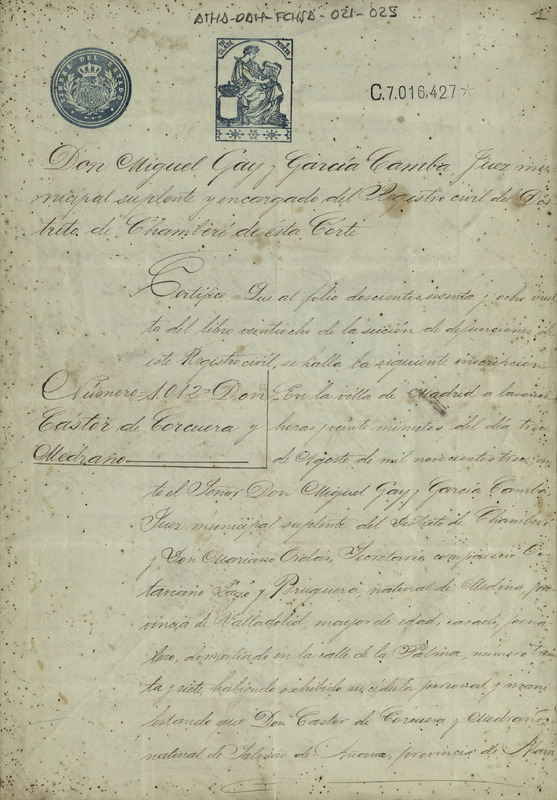 ATHA-DAH-FCHSA-021-023
1
TIMBRE DEL ESTADO
C.7.016.427
Don Miguel Gay y García Camba, Juez mu-
nicipal suplente y encargado del Registro civil del Dis-
trito de Chamberí de ésta Corte
Certifico = Que al folio doscientos sesenta y ocho vuel-
to del libro veintiocho de la sección de defunciones de
este Registro civil, se halla la siguiente inscripción
Número = 1.012 = Don
Cástor de Corcuera y
Medrano
En la villa de Madrid a las once
horas veinte minutos del día trece
de Agosto de mil novecientos trece; an-
te el Señor Don Miguel Gay y García Camba
Juez municipal suplente del Distrito de Chamberí
y Don Mariano Ordás, Secretario, compareció Oc-
taviano y Bruguera, natural de Medina, pro-
vincia de Valladolid, mayor de edad, casado, jorna-
lero, domiciliado en la calle de la Palma, número trein-
ta y siete, habiendo exhibido su cédula personal y mani-
festando que Don Castor de Corcuera y Medrano,
natural de Salinas de Añana, provincia de Álava